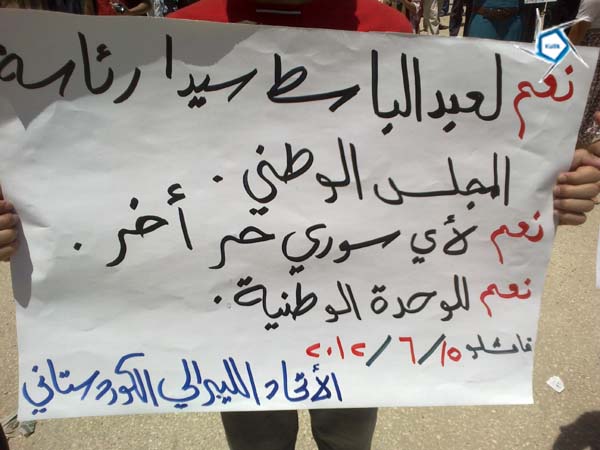 نعم لعبد الباسط سيدا رئاسة
المجلس الوطني .
نعم لأي سوري حر أخر .
نعم للوحدة الوطنية .
قامشلو ١٥/٦/٢٠١٢
الأتحاد الليبرالي الكوردستاني